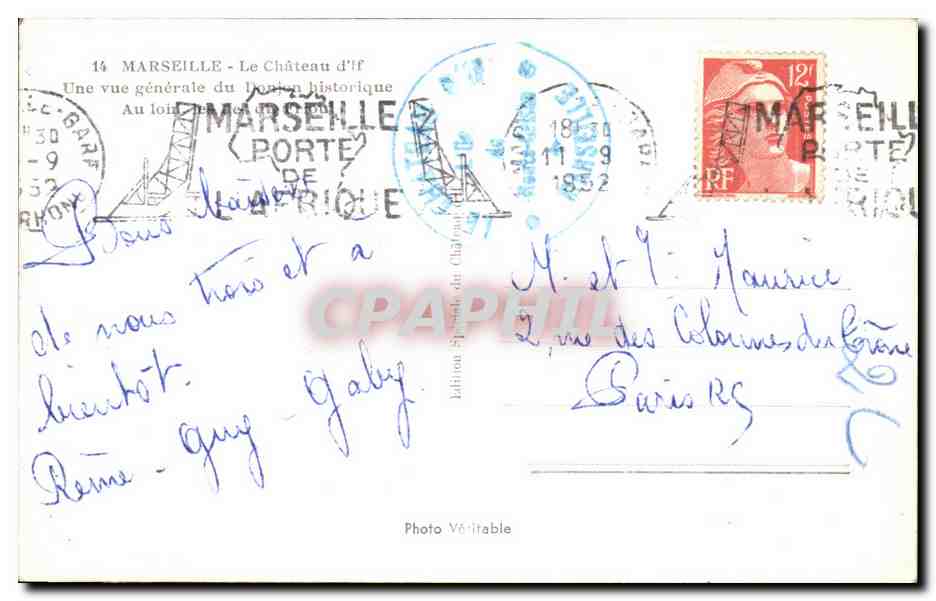 14 MARSEILLE - Le Château d'If
Une vue générale du Donjon historique
Au loin
MARSEILLE
PORTE
DE
L'AFRIQUE
E-BARF
30
-9
RHONE
18 30
11-9
1952
12F
RF
MARSEILL
PORTE
DE
RIQU
Bons baisers
de nous trois et à
bientôt.
Rème - Guy - Gaby.
Edition Spéciale du Château
M. et Me Maurice
2, rue des Colonnes du Trône
Paris
CPAPHIL
Photo Véritable